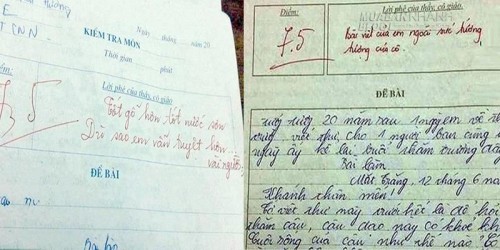 E
TCNN
KIỂM TRA MÔN
Ngày tháng năm 20
Thời gian phút
Điểm:
Lời phê của thầy, cô giáo
7,5
Tốt gỗ hơn tốt nước sơn
Dù sao em vẫn tuyệt hơn
vài người
ĐỀ BÀI
Điểm:
Lời phê của thầy, cô giáo
7,5
Bài viết của em ngoài sức tưởng
tượng của cô.
ĐỀ BÀI
tượng 20 năm sau 1 ngày em về
viết thư cho 1 người bạn cùng
ngày ấy kể lại buổi thăm trường
Bài làm
12 tháng 6
Khanh thân mến!
Tớ viết thư này trước hết là để hỏi
thăm cậu, cậu dạo này có khoẻ
Cuộc sống của cậu như thế nào?